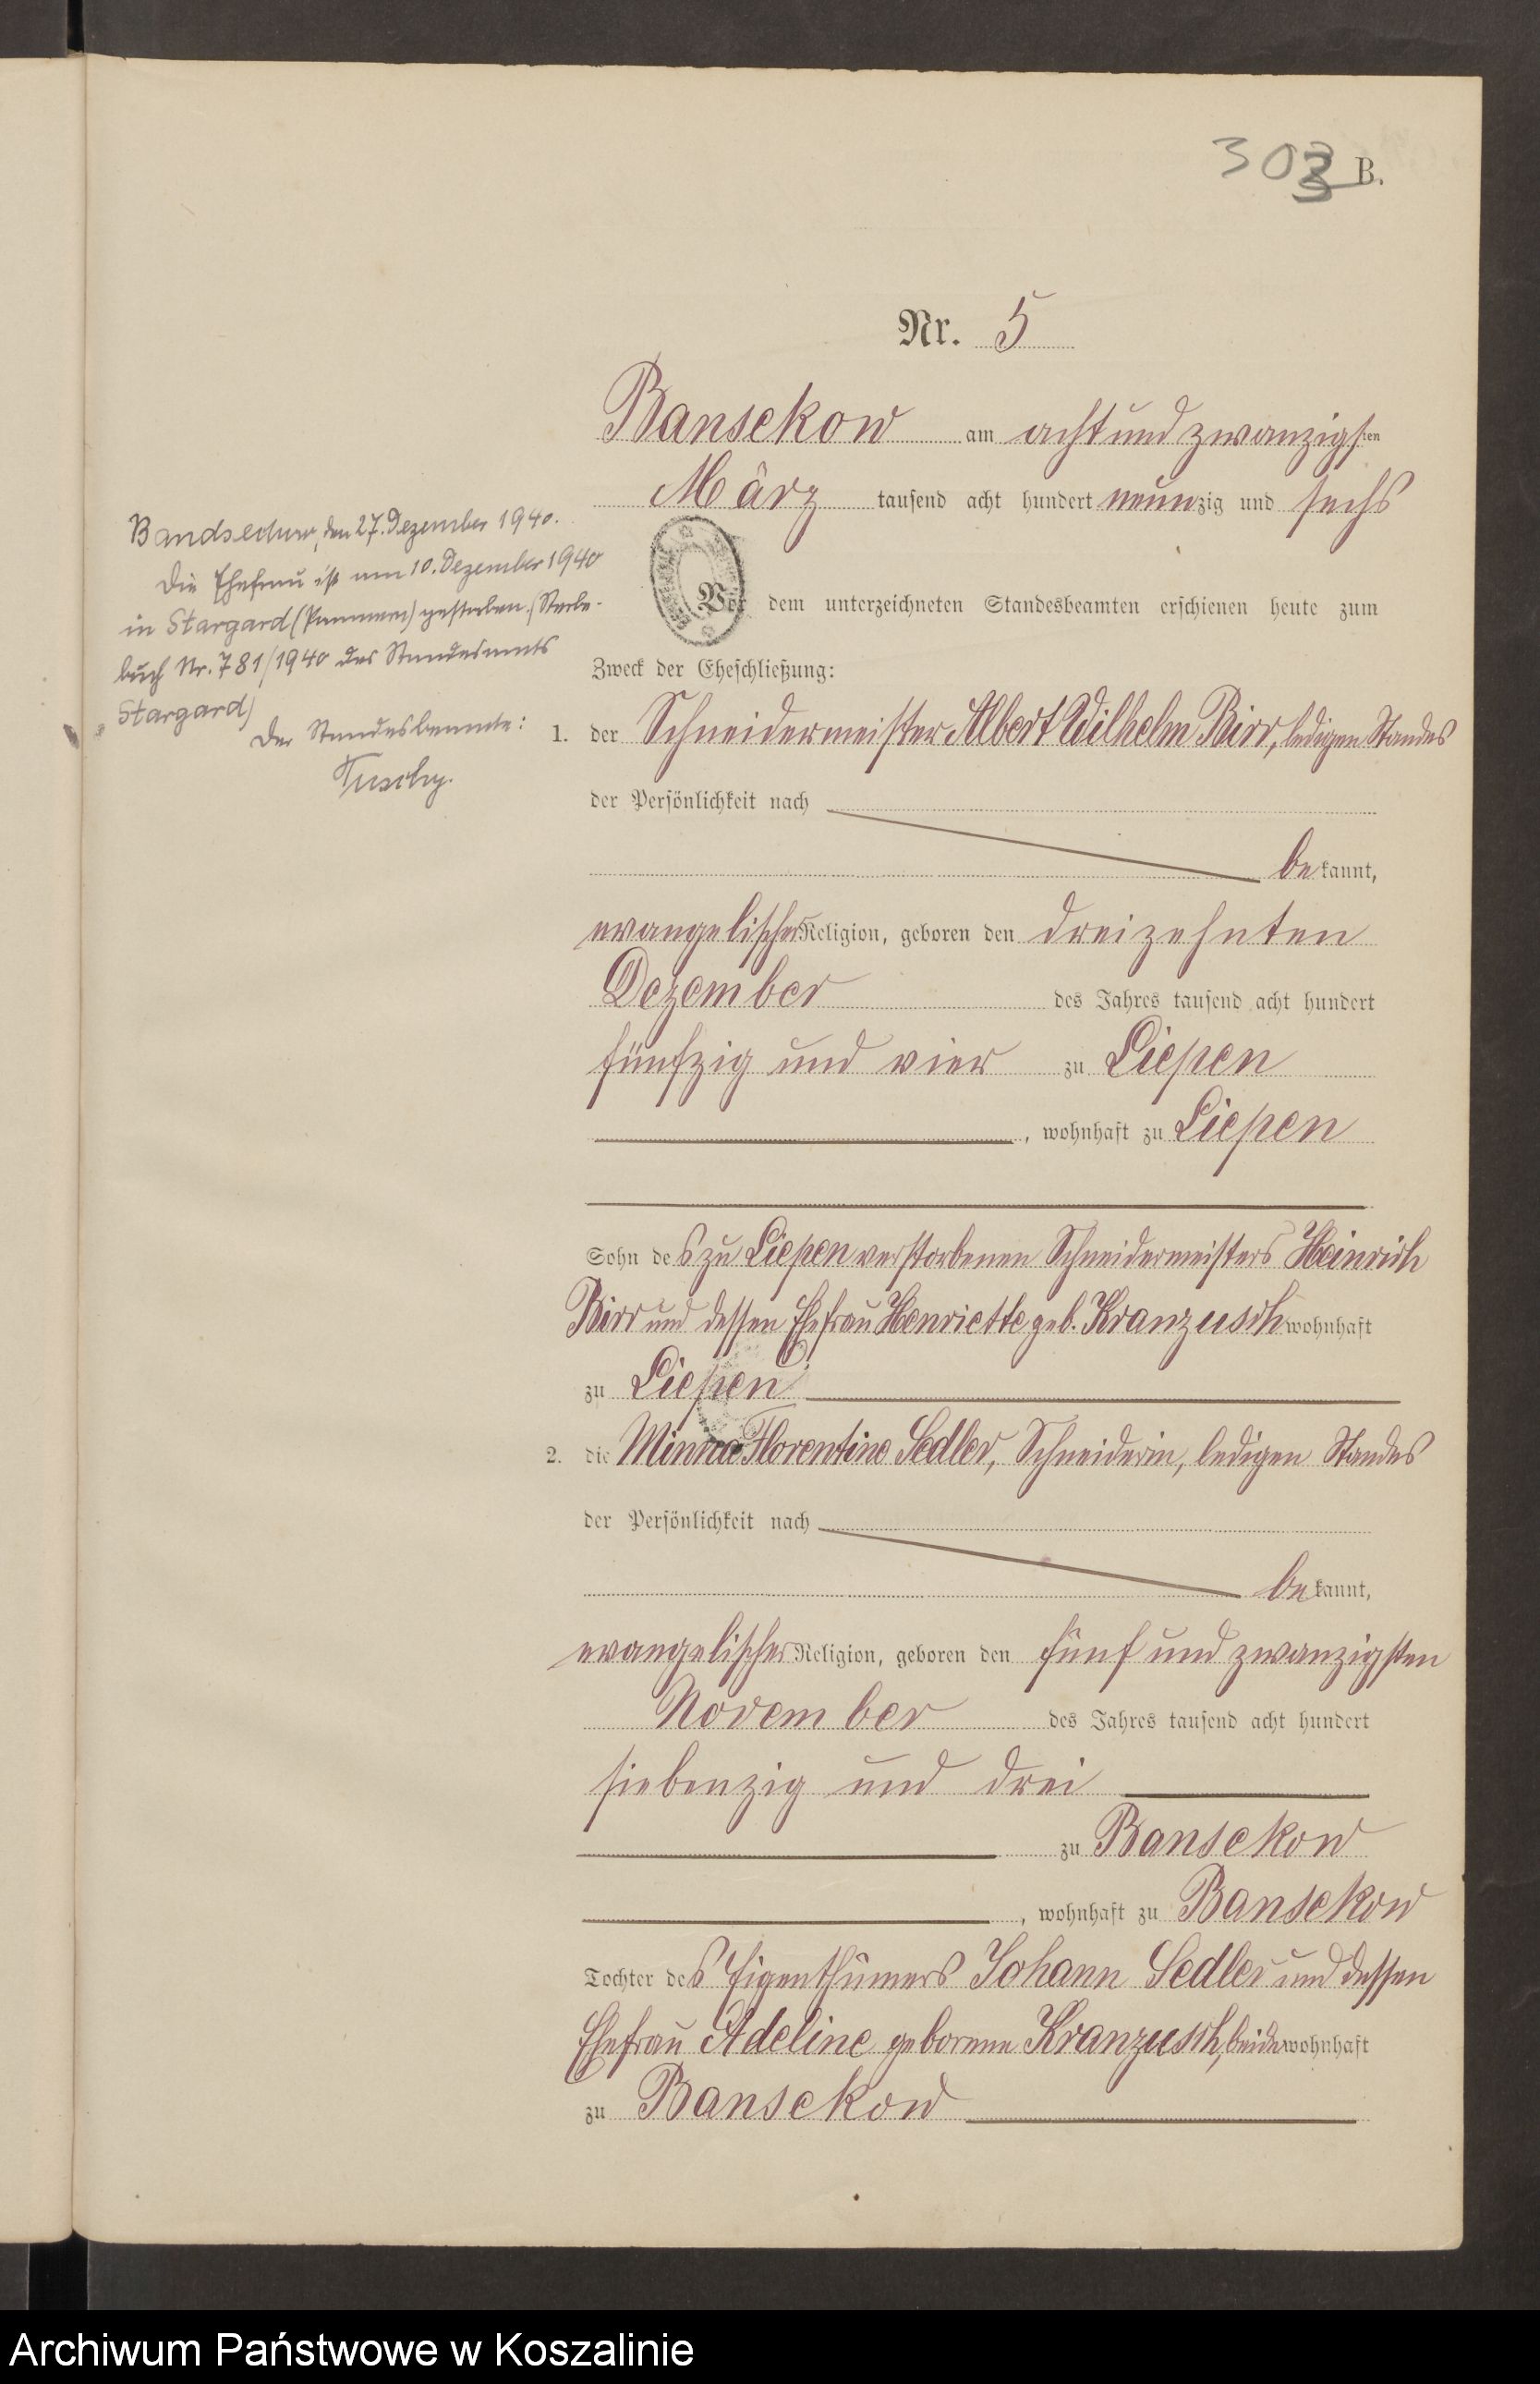 303 B.
Nr. 5
Bansekow am achtundzwanzigsten
März tausend acht hundert neunzig und sechs
Vor dem unterzeichneten Standesbeamten erschienen heute zum
Zweck der Eheschließung:
1. der Schneidermeister Albert Wilhelm Birr, ledigen Standes
der Persönlichkeit nach
bekannt,
evangelischer Religion, geboren den dreizehnten
Dezember des Jahres tausend acht hundert
fünfzig und vier zu Liepen
, wohnhaft zu Liepen
Sohn des zu Liepen verstorbenen Schneidermeisters Heinrich
Birr und dessen Ehefrau Henriette geb. Kranzusch wohnhaft
zu Liepen
2. die Minna Florentine Sedler, Schneiderin, ledigen Standes
der Persönlichkeit nach
bekannt,
evangelischer Religion, geboren den fünf und zwanzigsten
November des Jahres tausend acht hundert
siebenzig und drei
zu Bansekow
, wohnhaft zu Bansekow
Tochter des Eigenthümers Johann Sedler und dessen
Ehefrau Adeline geborene Kranzusch, beide wohnhaft
zu Bansekow
den 27. Dezember 1940.
Die Ehefrau ist am 10. Dezember 1940
in Stargard (Pommern) gestorben. (Sterbe-
buch Nr. 781/1940 des Standesamts
Stargard)
Der Standesbeamte:
Archiwum Państwowe w Koszalinie